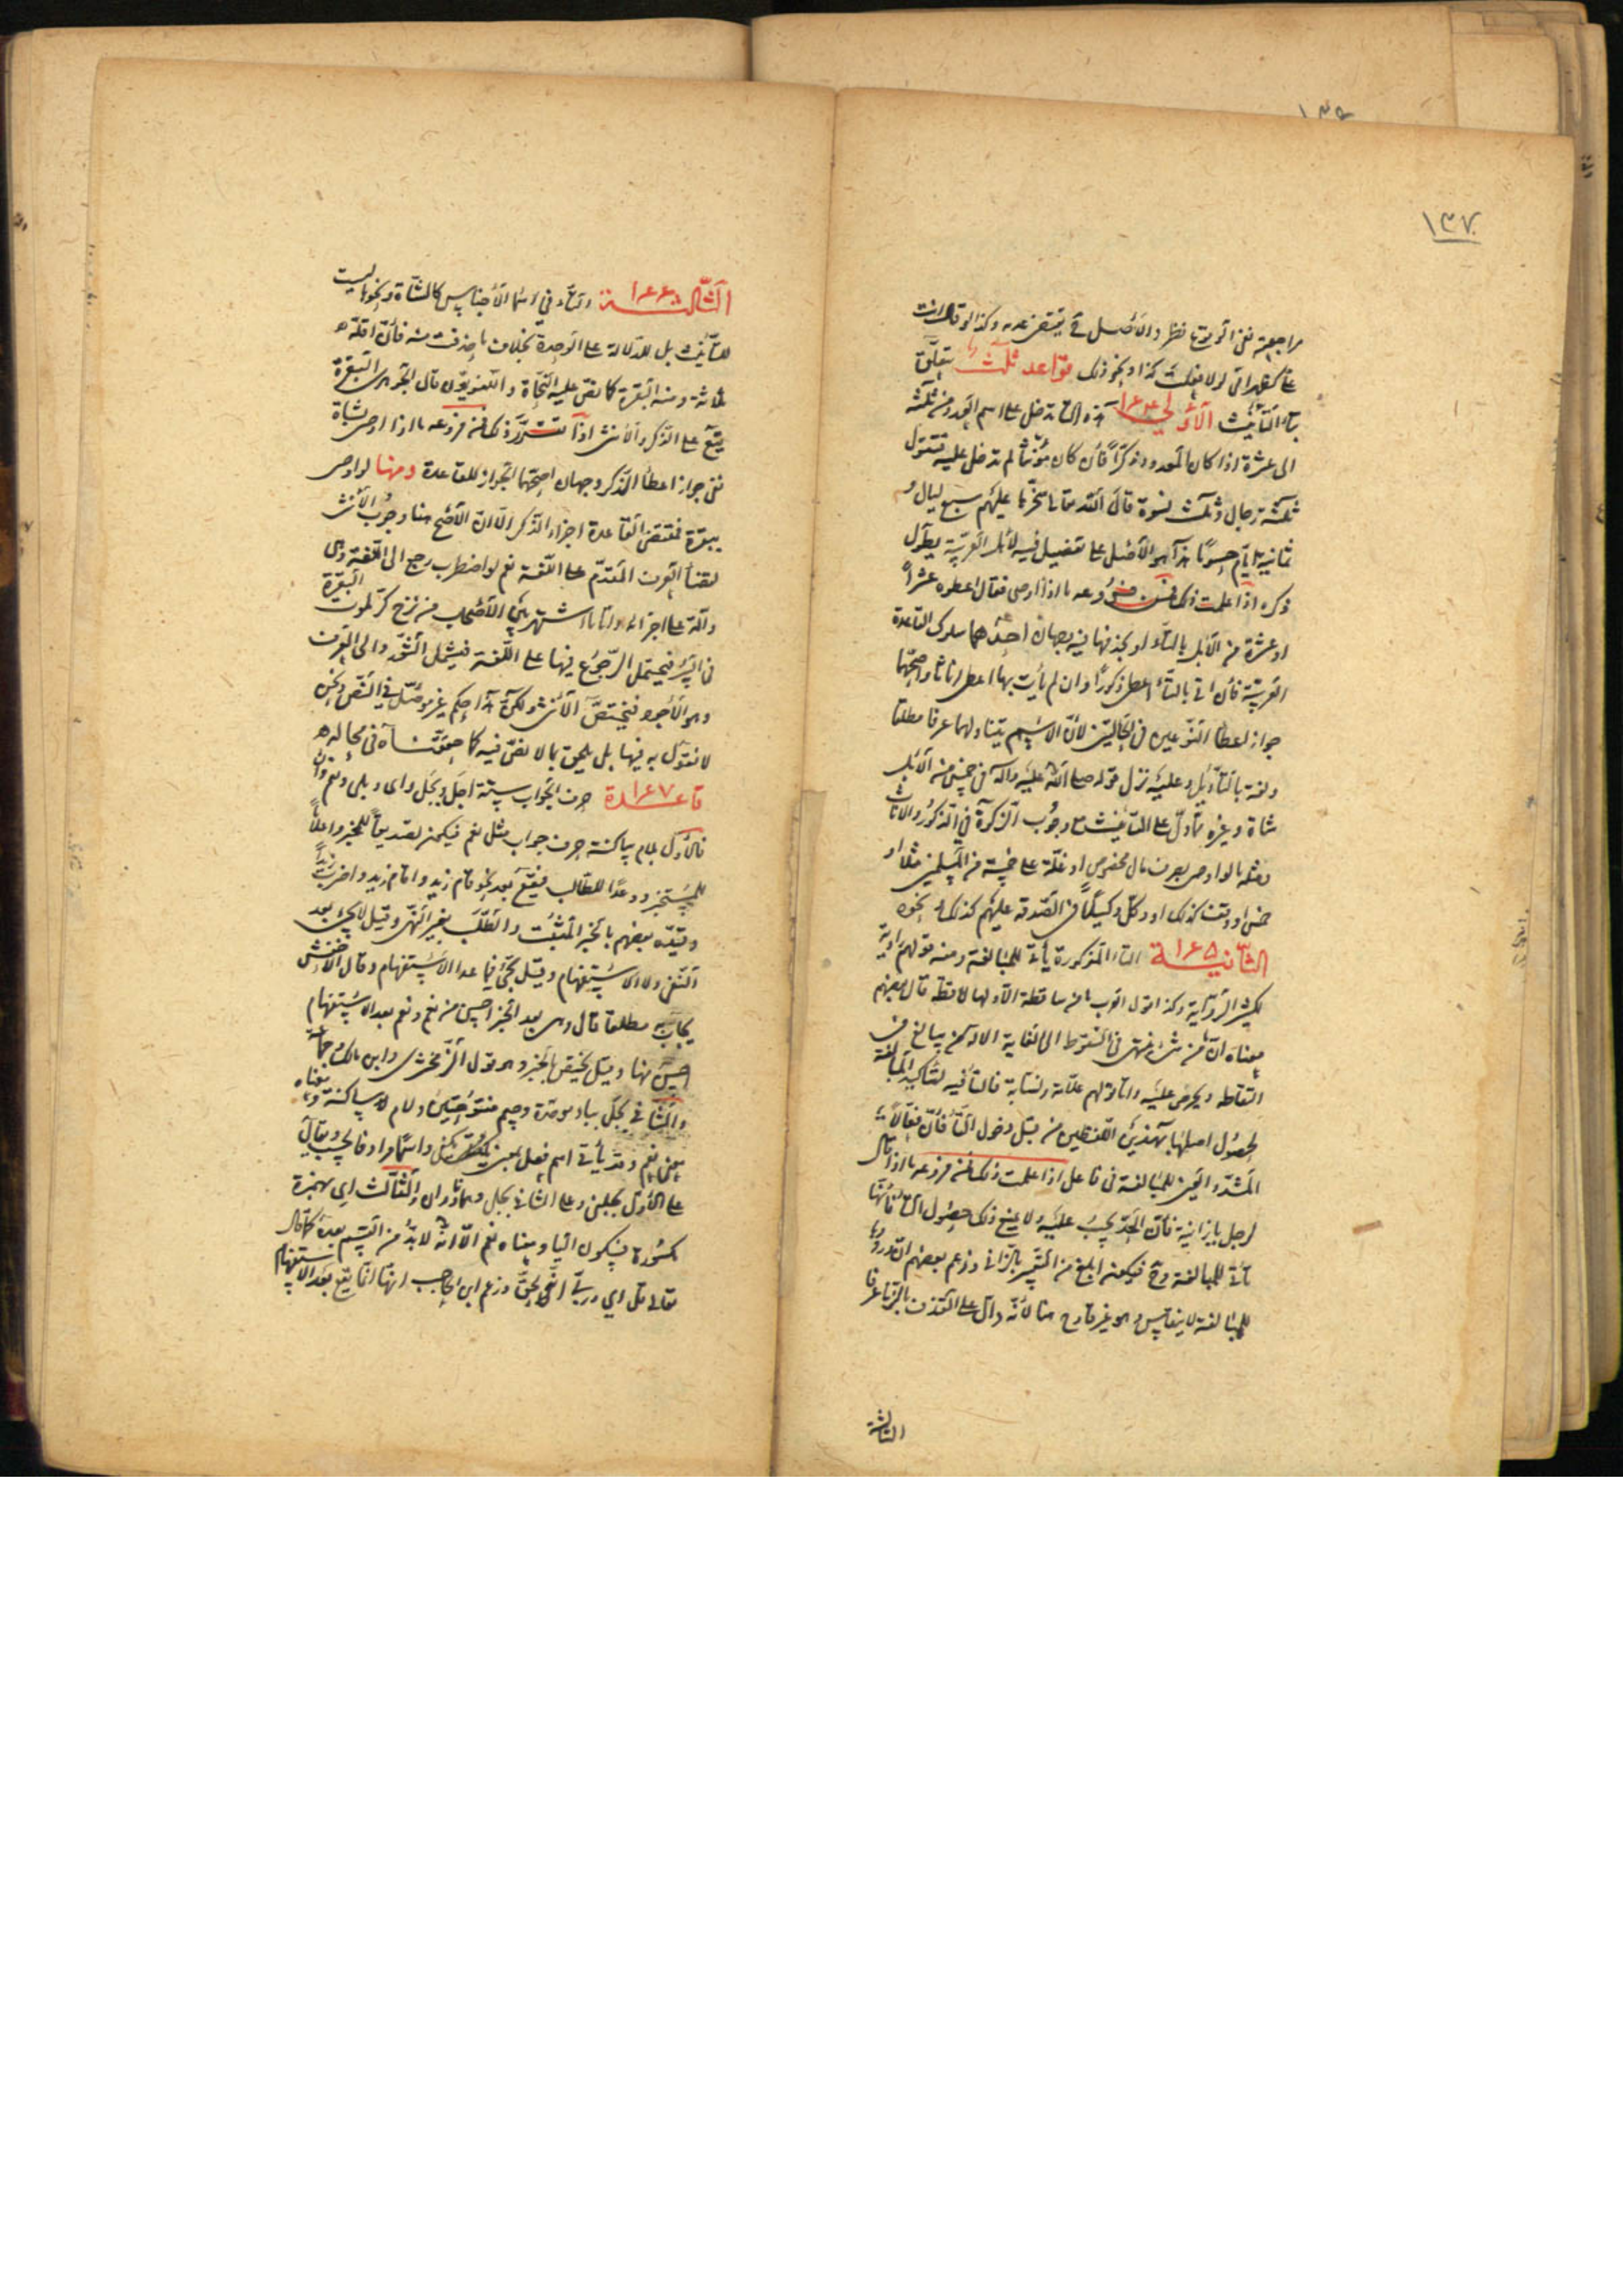 ١٣٧
مراجعته ففي الوقوع بها نظر والأصل يقتضي عدمه وكذا لو قال انت
علي كظهر امي لولا فعلت كذا او نحو ذلك قواعد ثلث يتعلق
بتاء التأنيث الأولى ١٦٤ هذه التا تدخل على اسم العدد من ثلثة
الى عشرة اذا كان المعدود مذكرا فان كان مؤنثا لم تدخل عليه فتقول
ثلثة رجال وثلث نسوة قال الله تعالى سخرها عليهم سبع ليال و
ثمانية ايام حسوما هذا هو الأصل على تفصيل فيه لاهل العربية يطول
ذكره اذا علمت ذلك فمن فروعه ما اذا اوصى فقال اعطوه عشرا
او عشرة من الابل بالتاء او بحذفها فيه وجهان احدهما سلوك القاعدة
العربية فان اتى بالتاء اعطي ذكورا وان لم يأت بها اعطي اناثا واصحهما
جواز اعطا النوعين في الحالين لأن الاسم يتناولهما عرفا مطلقا
ولغة بالتأويل وعليه نزل قوله صلى الله عليه وآله في خمس من الابل
شاة وغيره مما دل على التأنيث مع وجوب الزكوة في الذكور والاناث
ومثله ما لو اوصى بصرف مال مخصوص او غلة على خمسة من المسلمين مثلا او
خمس او وقف كذلك او وكل وكيلا في الصدقة عليهم كذلك و نحوه
الثانية ١٦٥ التا المذكورة يأتي للمبالغة ومنه قولهم راوية
لكثير الرواية وكذا قول العرب ما من ساقطة الا ولها لاقطة قال بعضهم
معناه ان ما من شيء ينتهي في السقوط الى الغاية الا وله من يبالغ في
التقاطه ويحرص عليه واما قولهم علامة ونسابة فالتا فيه لتأكيد المبالغة
لحصول اصلها بهذين اللفظين من قبل دخول التاء فان فعالا
المشدد العين للمبالغة في فاعل اذا علمت ذلك فمن فروعه ما اذا قال
لرجل يا زانية فان الحد يجب عليه ولا يمنع ذلك حصول التا فانها
تأتي للمبالغة وح فيكون ابلغ من التعبير بالزاني وزعم بعضهم ان ورودها
للمبالغة لا ينقاس وهو غير قادح هنا لأنه دال على القذف بالزنا عرفا
الثالثة
الثالثة ١٦٦ التاء في اسما الأجناس كالشاة ونحوها ليست
للتأنيث بل للدلالة على الوحدة بخلاف ما حذفت منه فان اقله
ثلاثة ومنه البقرة كما نص عليه النحاة واللغويون قال الجوهري البقرة
يقع على الذكر والأنثى اذا تقرر ذلك فمن فروعه ما اذا اوصى بشاة
ففي جواز اعطا الذكر وجهان اصحهما الجواز للقاعدة ومنها لو اوصى
ببقرة فمقتضى القاعدة اجزاء الذكر الا ان الأصح هنا وجوب الأنثى
لقضا العرف المتقدم على اللغة نعم لو اضطرب رجع الى اللغة وهي
دالة على اجزائه واما ما اشتهر بين الأصحاب من نزح كر لموت البقرة
في البئر فيحتمل الرجوع فيها على اللغة فيشمل الثور والى العرف
وهو الأجود فيختص الأنثى ولكن هذا حكم غير مؤصل في النص ونحن
لا نقول به فيها بل يلحق بما لا نص فيه كما حققناه في محاله
قاعدة ١٦٧ حرف الجواب ستة اجل وبجل واى وبلى ونعم وان
فالأول بلام ساكنة حرف جواب مثل نعم فيكون تصديقا للمخبر واعلاما
للمستخبر ووعدا للطالب فيقع بعد نحو قام زيد واقام زيد واضرب زيدا
وقيده بعضهم بالخبر المثبت والطلب بغير النهي وقيل لا يجيء بعد
النفي ولا الاستفهام وقيل يجيء فيما عدا الاستفهام وقال الأخفش
يجاب به مطلقا قال وهي بعد الخبر احسن من نعم ونعم بعد الاستفهام
احسن منها وقيل يختص بالخبر وهو قول الزمخشري وابن مالك وجماعة
والثاني بجل بباء موحدة وجيم مفتوحتين ولام ساكنة ومعناه
معنى نعم وقد يأتي اسم فعل بمعنى يكفي واسما مرادفا لحسب ويقال
على الأول بجلني وعلى الثاني بجلي وهما نادران والثالث اي بهمزة
مكسورة فسكون اليا ومعناه نعم الا انه لا بد من القسم بعده كما قال
تعالى قل اي وربي انه لحق وزعم ابن الحاجب انها انما يقع بعد الاستفهام